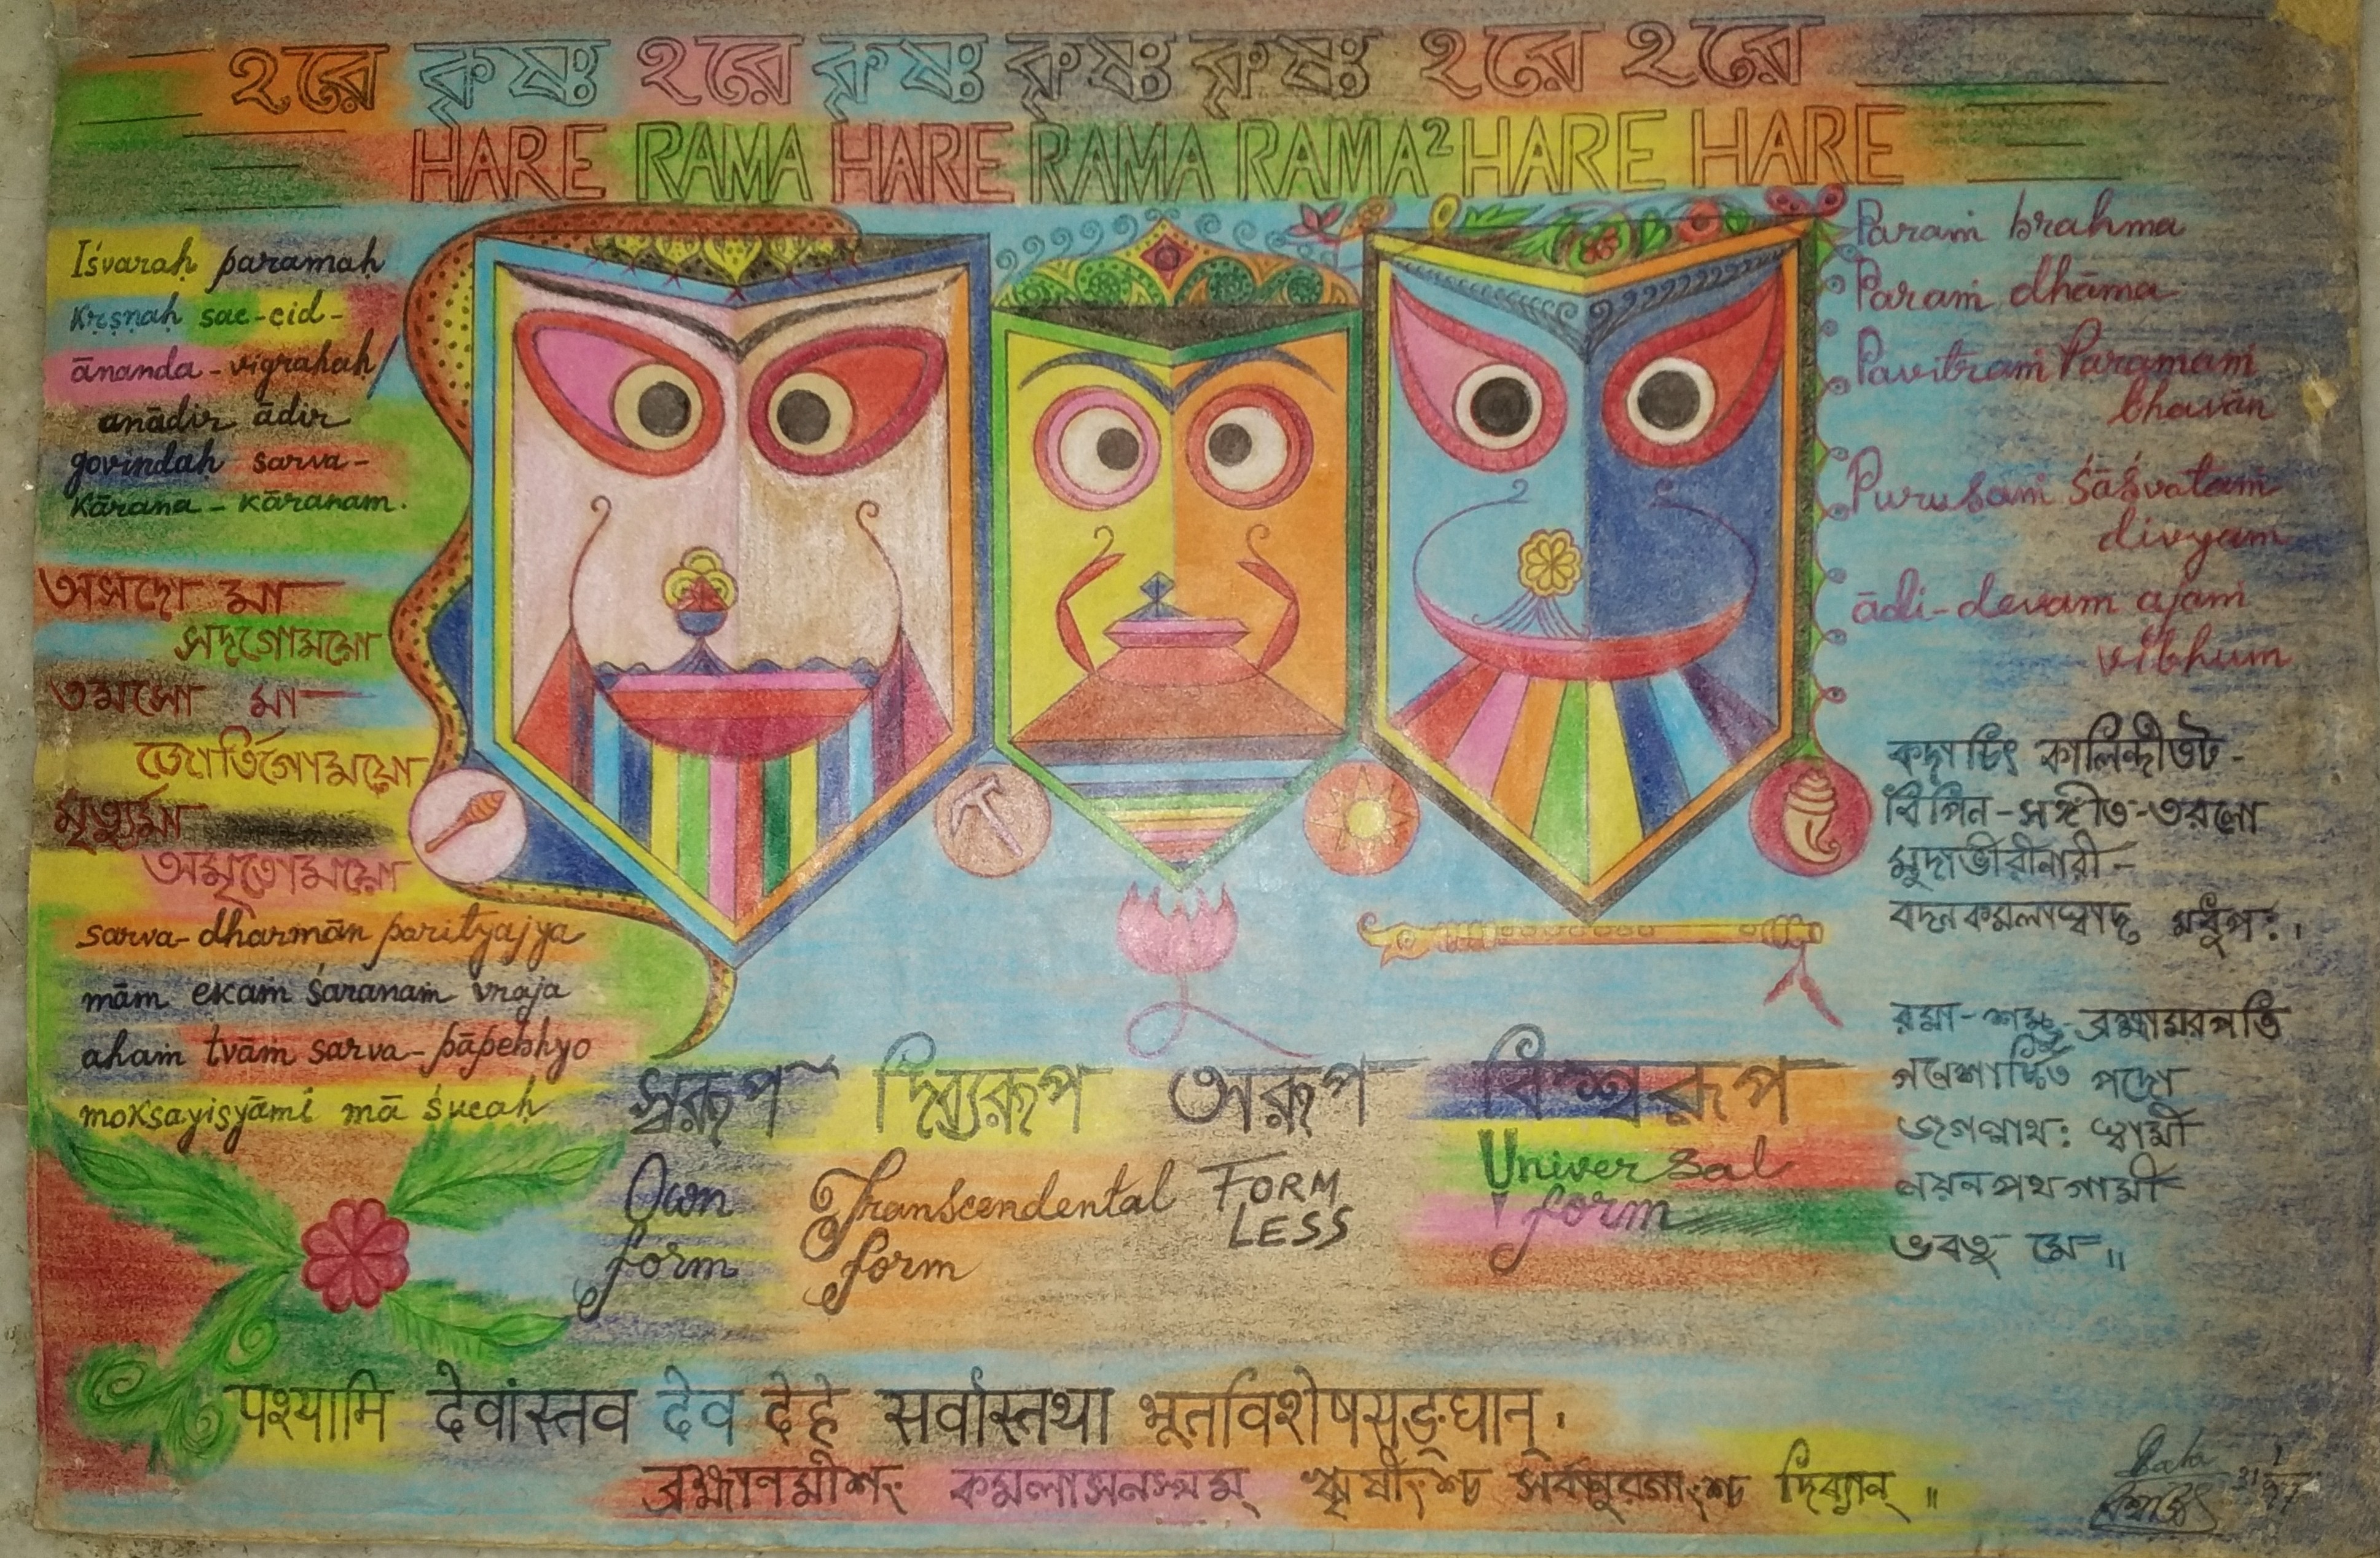 হরে কৃষ্ণঃ হরে কৃষ্ণঃ কৃষ্ণঃ কৃষ্ণঃ হরে হরে
HARE RAMA HARE RAMA RAMA² HARE HARE
Iśvaraḥ paramaḥ
Kṛṣṇaḥ sac-cid-
ānanda-vigrahaḥ/
anādir ādir
govindaḥ sarva-
Kāraṇa-kāraṇam.
অসদো মা
সদগোময়ো
তমসো মা
জ্যোর্তিগোময়ো
মৃত্যুর্মা
অমৃতোময়ো
sarva-dharmān parityajya
mām ekaṁ śaranaṁ vraja
ahaṁ tvāṁ sarva-pāpebhyo
mokṣayiṣyāmi mā śucaḥ
Paraṁ brahma
Paraṁ dhāma
Pavitraṁ Paramaṁ
bhavān
Purusaṁ śāśvataṁ
divyam
ādi-devam ajaṁ
vibhum
কদাচিৎ কালিন্দীতট-
বিপিন-সঙ্গীত-তরলো
মুদাভীরীনারী-
বদনকমলাস্বাদ মধুপঃ।
রমা-শম্ভু-ব্রহ্মামরপতি
গণেশার্চ্চিত পদো
জগন্নাথঃ স্বামী
নয়নপথগামী
ভবতু মে॥
স্বরূপ দিব্যরূপ অরূপ বিশ্বরূপ
Own form
Transcendental form
FORM LESS
Universal form
पश्यामि देवांस्तव देव देहे सर्वांस्तथा भूतविशेषसङ्घान्।
ব্রহ্মাণমীশং কমলাসনস্থম্ ঋষীংশ্চ সর্বানুরগাংশ্চ দিব্যান্॥